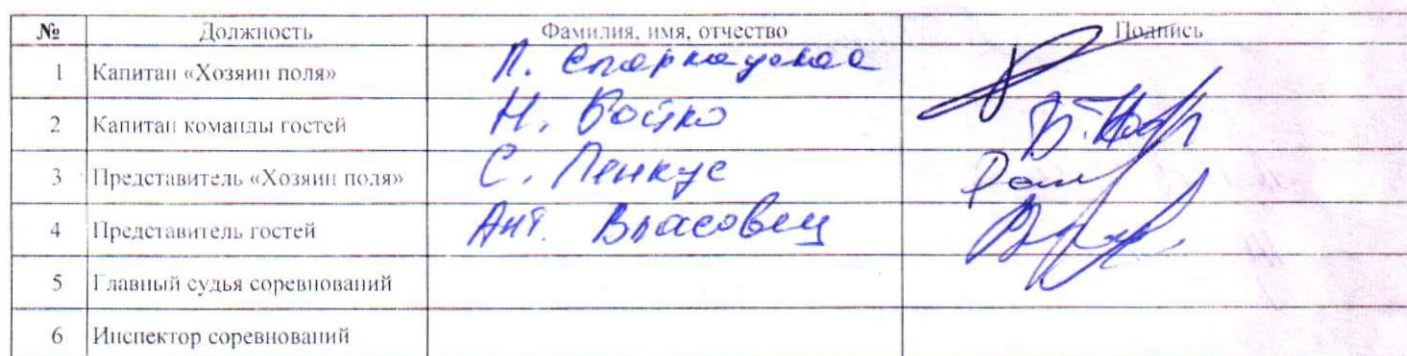 № Должность Фамилия, имя, отчество Подпись
1 Капитан «Хозяин поля» Л.
2 Капитан команды гостей Н. Бойко
3 Представитель «Хозяин поля» С. Пенкус
4 Представитель гостей Ант. Власовец
5 Главный судья соревнований
6 Инспектор соревнований